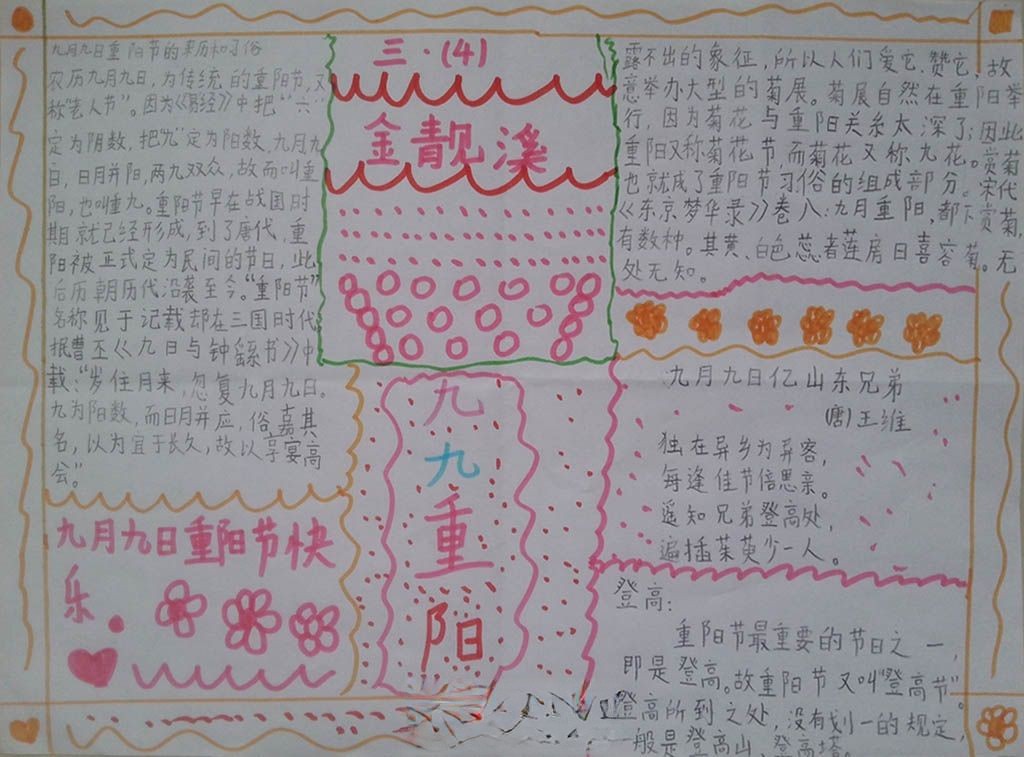 九月九日重阳节的来历和习俗
农历九月九日，为传统的重阳节，又
称“老人节”。因为《易经》中把“六”
定为阴数，把“九”定为阳数，九月九
日，日月并阳，两九双众，故而叫重
阳，也叫重九。重阳节早在战国时
期就已经形成，到了唐代，重
阳被正式定为民间的节日，此
后历朝历代沿袭至今。“重阳节”
名称见于记载却在三国时代
据曹丕《九日与钟繇书》中
载：“岁住月来，忽复九月九日。
九为阳数，而日月并应，俗嘉其
名，以为宜于长久，故以享宴高
会。”
九月九日重阳节快
乐。
三·(4)
金靓溪
九
九
重
阳
露不出的象征，所以人们爱它、赞它，故
意举办大型的菊展。菊展自然在重阳举
行，因为菊花与重阳关系太深了；因此
重阳又称菊花节，而菊花又称九花。赏菊
也就成了重阳节习俗的组成部分。宋代
《东京梦华录》卷八：九月重阳，都下赏菊，
有数种。其黄、白色蕊者莲房日喜容菊。无
处无知。
九月九日亿山东兄弟
(唐)王维
独在异乡为异客，
每逢佳节倍思亲。
遥知兄弟登高处，
遍插茱萸少一人。
登高：
重阳节最重要的节日之一，
即是登高。故重阳节又叫“登高节”。
登高所到之处，没有划一的规定，
一般是登高山、登高塔。